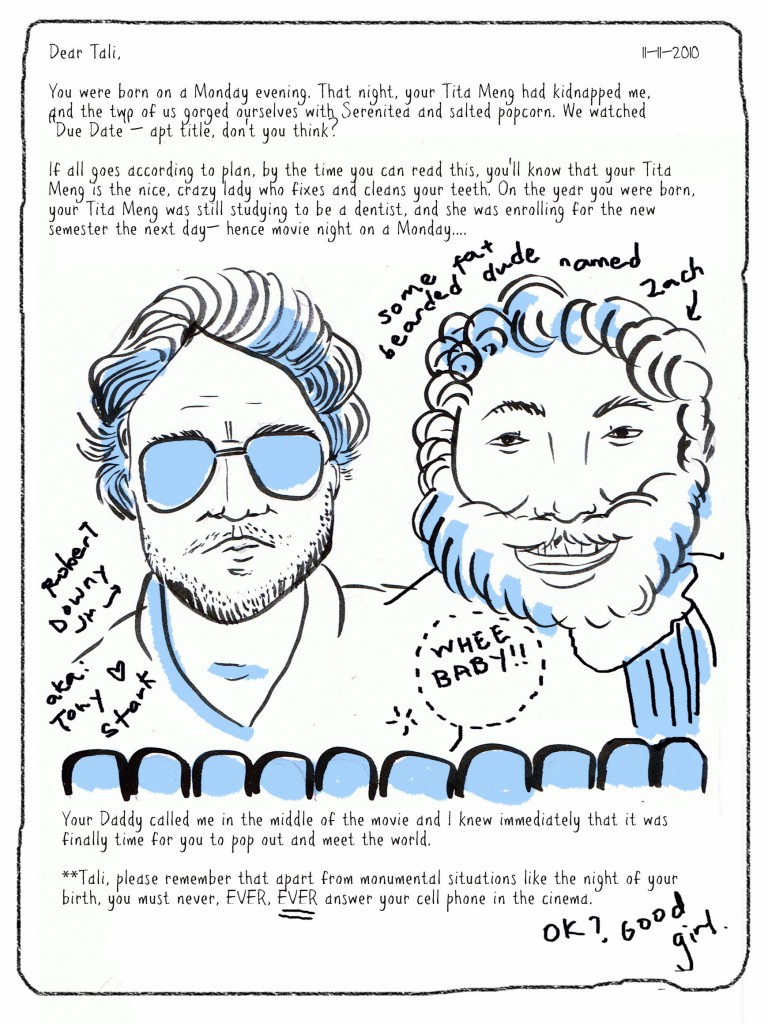 Dear Tali,
11-11-2010
You were born on a Monday evening. That night, your Tita Meng had kidnapped me,
and the two of us gorged ourselves with Serenited and salted popcorn. We watched
Due Date — apt title, don't you think?
If all goes according to plan, by the time you can read this, you'll know that your Tita
Meng is the nice, crazy lady who fixes and cleans your teeth. On the year you were born,
your Tita Meng was still studying to be a dentist, and she was enrolling for the new
semester the next day— hence movie night on a Monday....
some fat
bearded dude named
Zach
Robert
Downy
Jr
aka:
Tony
Stark
WHEE
BABY!!
Your Daddy called me in the middle of the movie and I knew immediately that it was
finally time for you to pop out and meet the world.
**Tali, please remember that apart from monumental situations like the night of your
birth, you must never, EVER, EVER answer your cell phone in the cinema.
OK?. GOOD
girl.